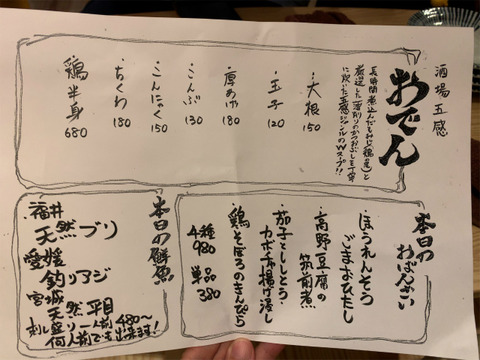 酒場五感
おでん
長時間煮込んだもみじ(鶏の足)と
厳選した一番削りのかつおぶしを丁寧
に炊いた五感オリジナルのWスープ!!
・大根 150
・玉子 120
・厚あげ 180
・こんぶ 130
・こんにゃく 150
・ちくわ 180
・鶏半身 680
本日のおばんざい
・ほうれんそう
ごまおひたし
・高野豆腐の
筑前煮
・茄子とししとう・
カボチャの揚げ浸し
・鶏そぼろのきんぴら
4種 980
単品 380
本日の鮮魚
福井
天然ブリ
愛媛
釣りアジ
宮城
天然平目
刺し盛り一人前480〜
何人前でも出来ます!